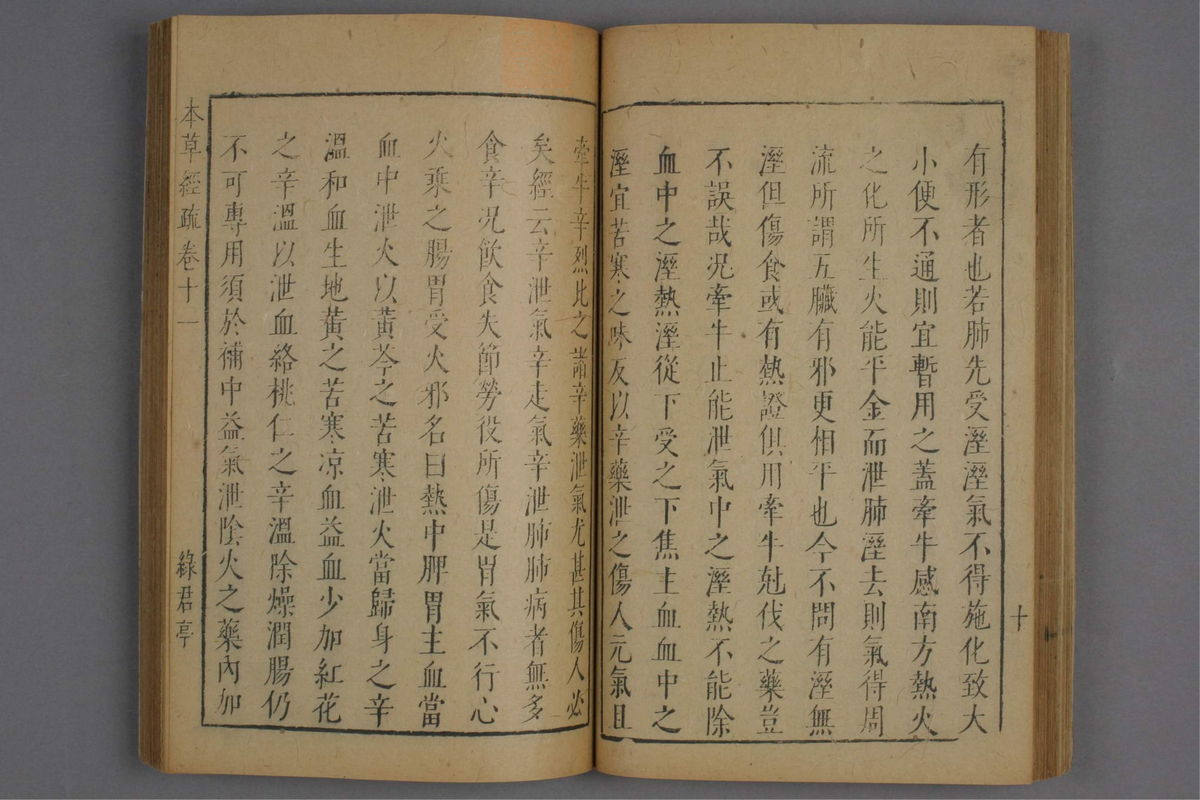 十
有形者也若肺先受溼溼氣不得施化致大
小便不通則宜暫用之蓋牽牛感南方熱火
之化所生火能平金而泄肺溼去則氣得周
流所謂五臟有邪更相平也今不問有溼無
溼但傷食或有熱證俱用牽牛尅伐之藥豈
不誤哉况牽牛止能泄氣中之溼熱不能除
血中之溼熱溼從下受之下焦主血血中之
溼宜苦寒之味反以辛藥泄之傷人元氣且
牽牛辛烈比之諸辛藥泄氣尤甚其傷人必
矣經云辛泄氣辛走氣辛泄肺肺病者無多
食辛况飲食失節勞役所傷是胃氣不行心
火乘之腸胃受火邪名曰熱中脾胃主血當
血中泄火以黃芩之苦寒泄火當歸身之辛
溫和血生地黃之苦寒凉血益血少加紅花
之辛溫以泄血絡桃仁之辛溫除燥潤腸仍
不可專用須於補中益氣泄陰火之藥內加
本草經疏 卷十一 綠君亭